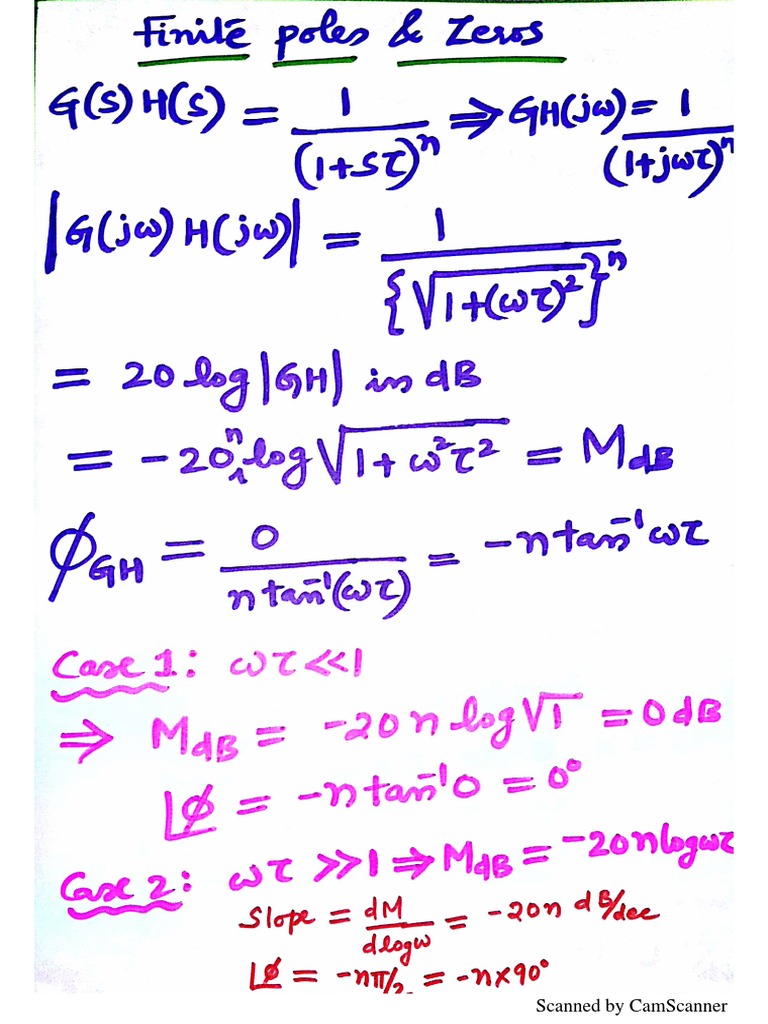 Finite poles & Zeros
G(s) H(s) = 1/(1+sτ)^n ⇒ GH(jω) = 1/(1+jωτ)^n
|G(jω) H(jω)| = 1/{√(1+(ωτ)²)}^n
= 20 log |GH| in dB
= -20 n log √(1+ω²τ²) = M_dB
ϕ_GH = 0/(n tan⁻¹(ωτ)) = -n tan⁻¹ ωτ
Case 1: ωτ << 1
⇒ M_dB = -20 n log √1 = 0 dB
∠ϕ = -n tan⁻¹ 0 = 0°
Case 2: ωτ >> 1 ⇒ M_dB = -20 n log ωτ
Slope = dM/(d log ω) = -20n dB/dec
∠ϕ = -nπ/2 = -n×90°
Scanned by CamScanner